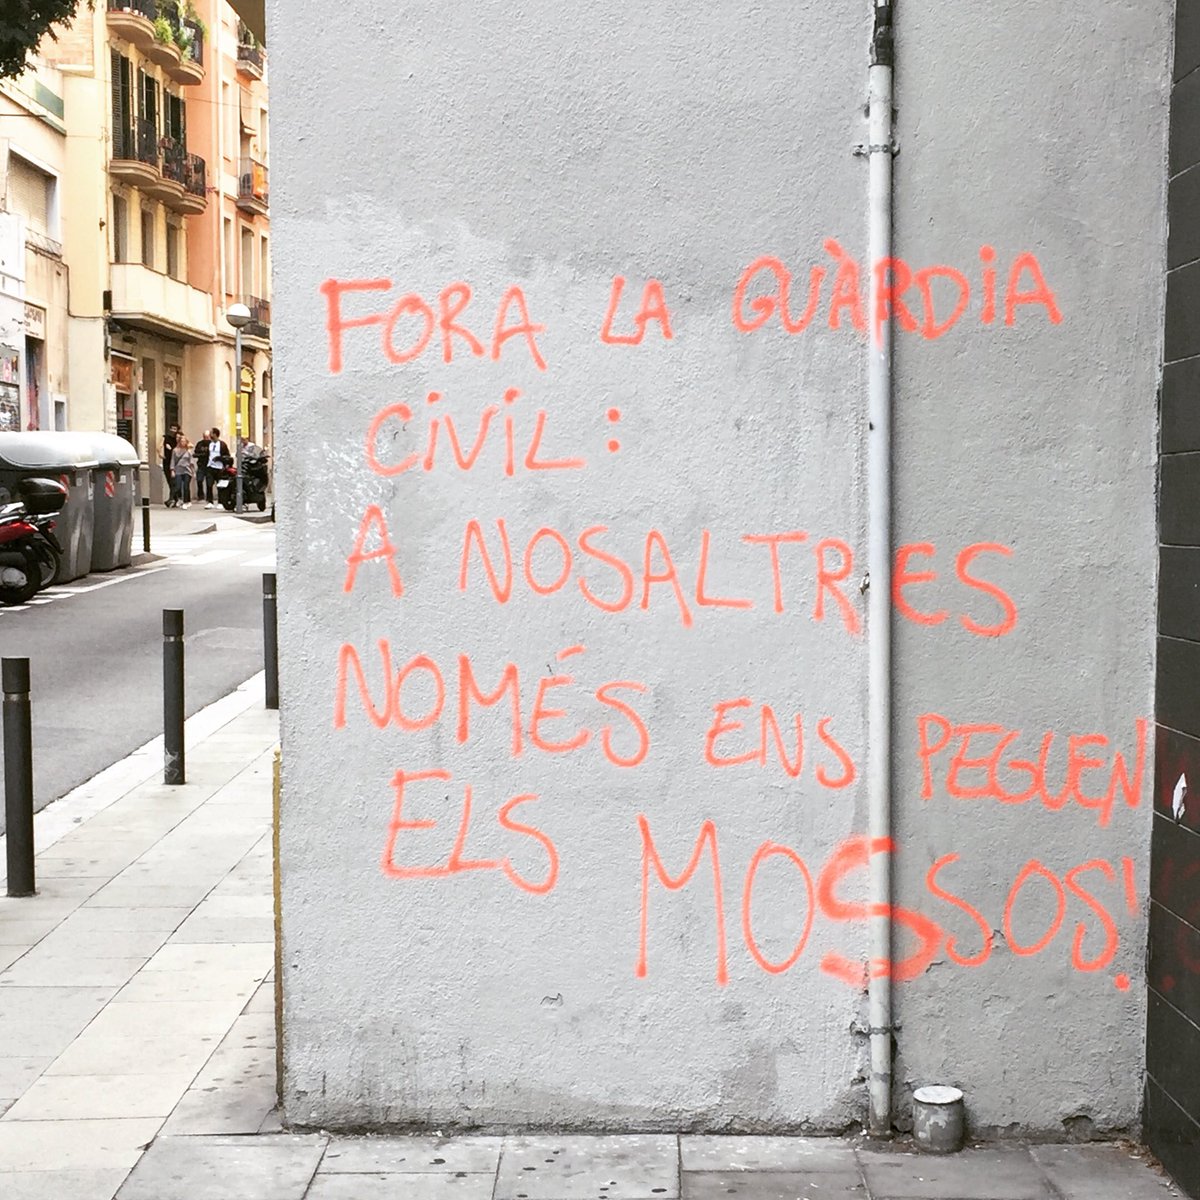 FORA LA GUÀRDIA
CIVIL:
A NOSALTRES
NOMÉS ENS PEGUEN
ELS MOSSOS!